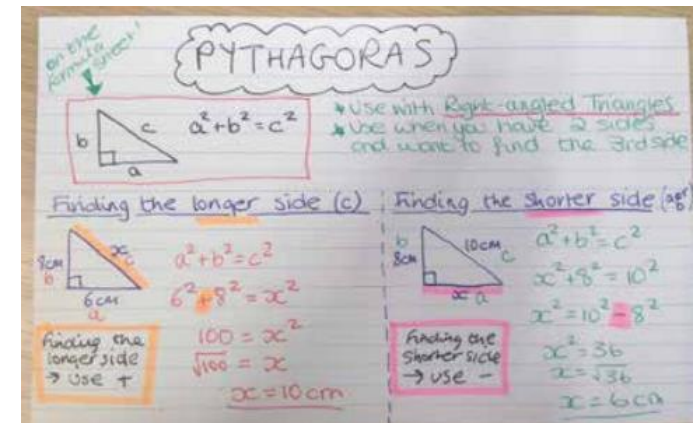 on the
formula
sheet!
PYTHAGORAS
b
c
a
a²+b²=c²
* Use with Right-angled Triangles
* Use when you have 2 sides
and want to find the 3rd side
Finding the longer side (c)
8cm
b
x
c
6cm
a
a²+b²=c²
6²+8²=x²
100=x²
√100=x
x=10cm
Finding the
longer side
→ use +
Finding the shorter side (a or b)
b
8cm
10cm
c
x a
a²+b²=c²
x²+8²=10²
x²=10²-8²
x²=36
x=√36
x=6cm
Finding the
shorter side
→ use -